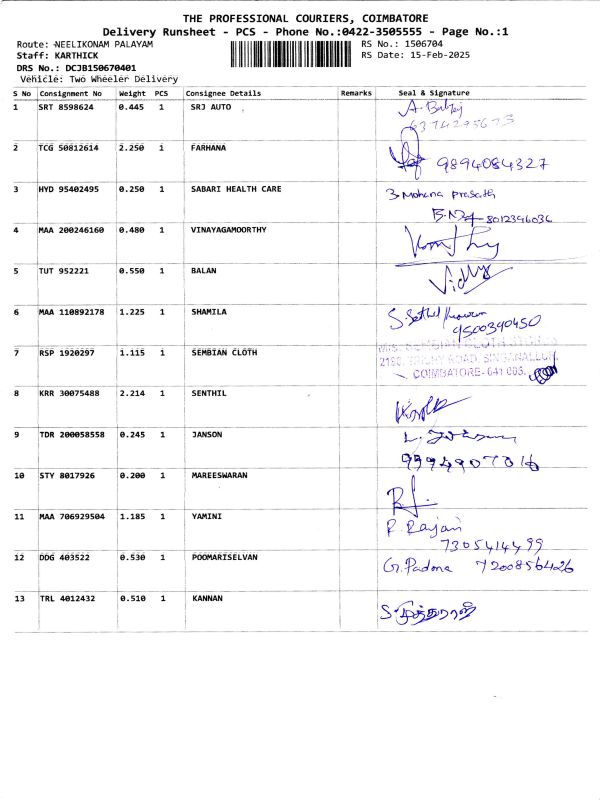 THE PROFESSIONAL COURIERS, COIMBATORE
Delivery Runsheet - PCS - Phone No.:0422-3505555 - Page No.:1
Route: NEELIKONAM PALAYAM RS No.: 1506704
Staff: KARTHICK RS Date: 15-Feb-2025
DRS No.: DCJB150670401
Vehicle: Two Wheeler Delivery
S No Consignment No Weight PCS Consignee Details Remarks Seal & Signature
1 SRT 8598624 0.445 1 SRJ AUTO
6374295673
2 TCG 50812614 2.250 1 FARHANA
9894084327
3 HYD 95402495 0.250 1 SABARI HEALTH CARE
Mohana Prasath
8012396036
4 MAA 200246160 0.480 1 VINAYAGAMOORTHY
5 TUT 952221 0.550 1 BALAN
6 MAA 110892178 1.225 1 SHAMILA
9500390450
7 RSP 1920297 1.115 1 SEMBIAN CLOTH
ROAD, SINGANALLUR,
COIMBATORE-641 005.
8 KRR 30075488 2.214 1 SENTHIL
9 TDR 200058558 0.245 1 JANSON
9994907016
10 STY 8017926 0.200 1 MAREESWARAN
11 MAA 706929504 1.185 1 YAMINI
R. Rajan
7305414499
12 DDG 403522 0.530 1 POOMARISELVAN
G. Padma 7200856426
13 TRL 4012432 0.510 1 KANNAN